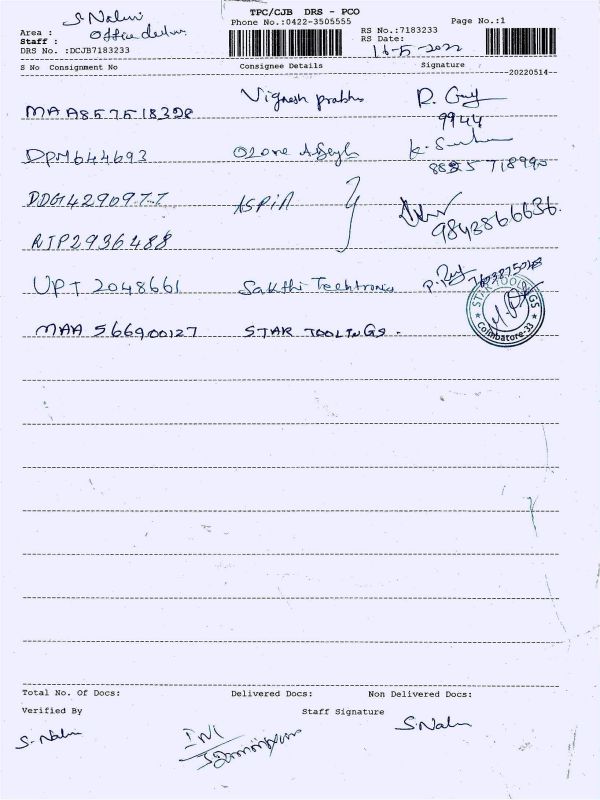 TPC/CJB DRS - PCO
S. Nalini
Phone No.:0422-3505555
Page No.:1
Area :
Staff :
RS No.:7183233
RS Date:
DRS No. :DCJB7183233
16-5-2022
S No Consignment No Consignee Details Signature
20220514
MAA857518328 Vignesh prabhu
9944
DPM644693 Ozone
ASPIA
9843866636
AIP2936488
UPT 2048661 Sakthi Techtronics
MAA 566900127 STAR TOOLINGS.
STAR TOOLINGS
Coimbatore-33
Total No. Of Docs: Delivered Docs: Non Delivered Docs:
Verified By Staff Signature
S. Nalini S. Nalini